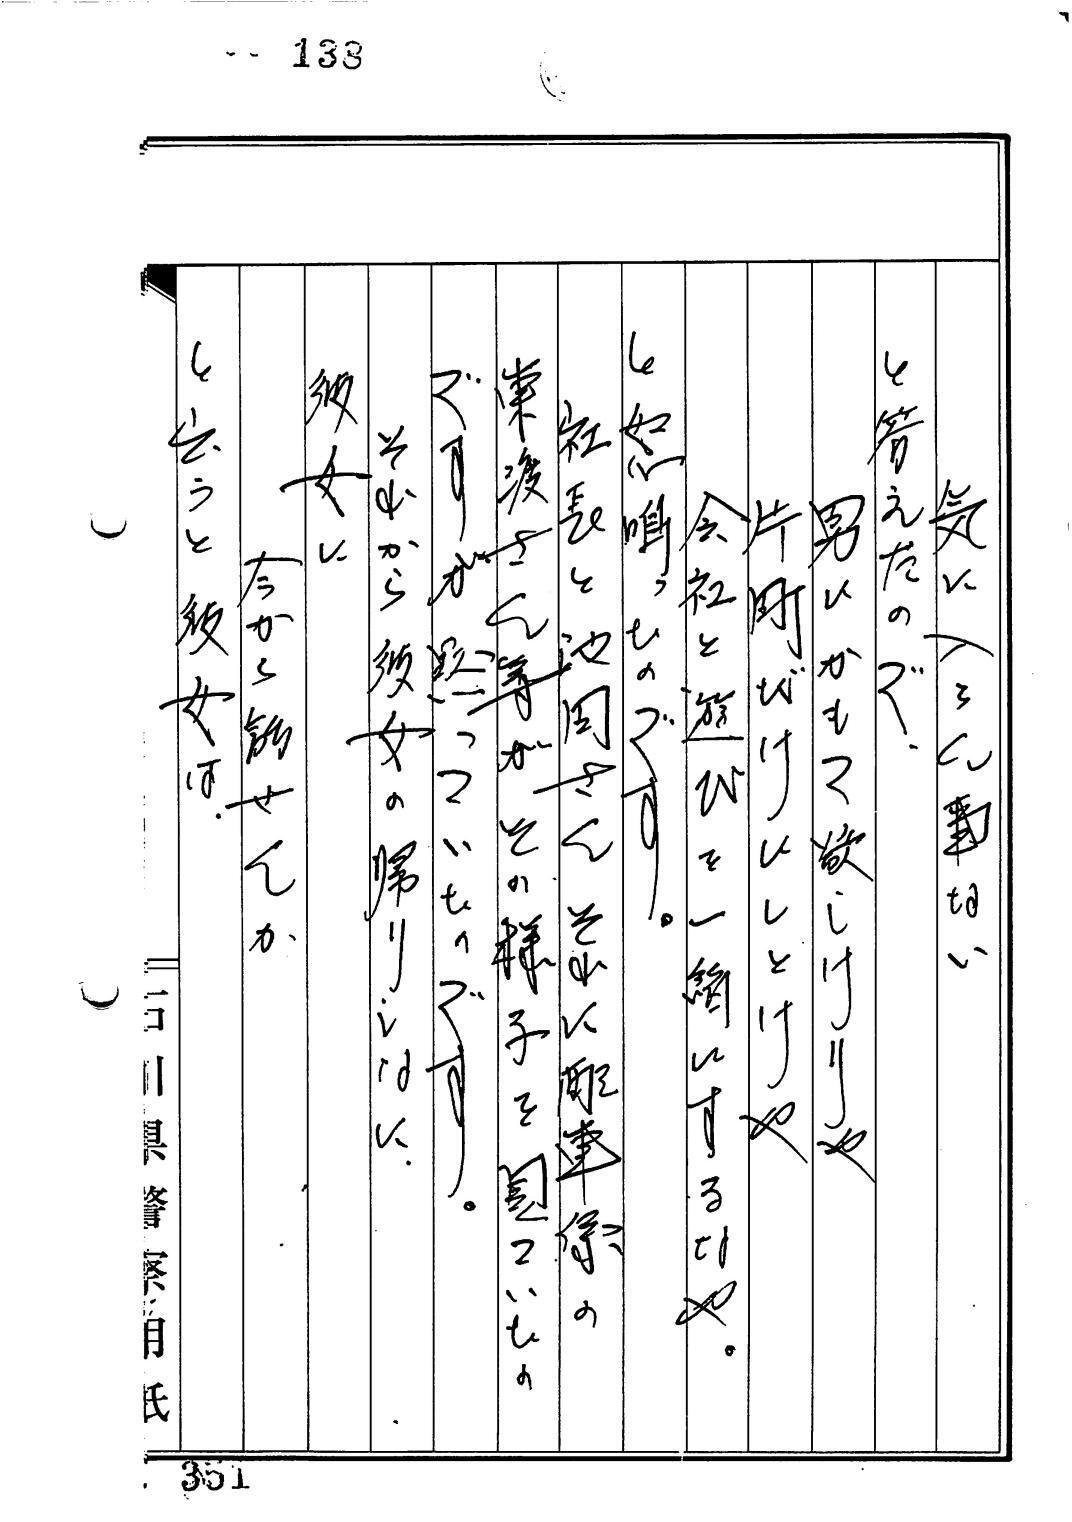 138
気に入らん事ない
と答えたので、
男にかもて欲しけりや
片町だけにしとけや
会社と遊びを一緒にするなや。
と怒鳴ったのです。
社長と池田さんそれに配車係の
東渡さん等がその様子を見ていたの
ですが黙っていたのです。
それから彼女の帰りしなに、
彼女に
今から話せんか
と云うと彼女は、
石川県警察用紙
351